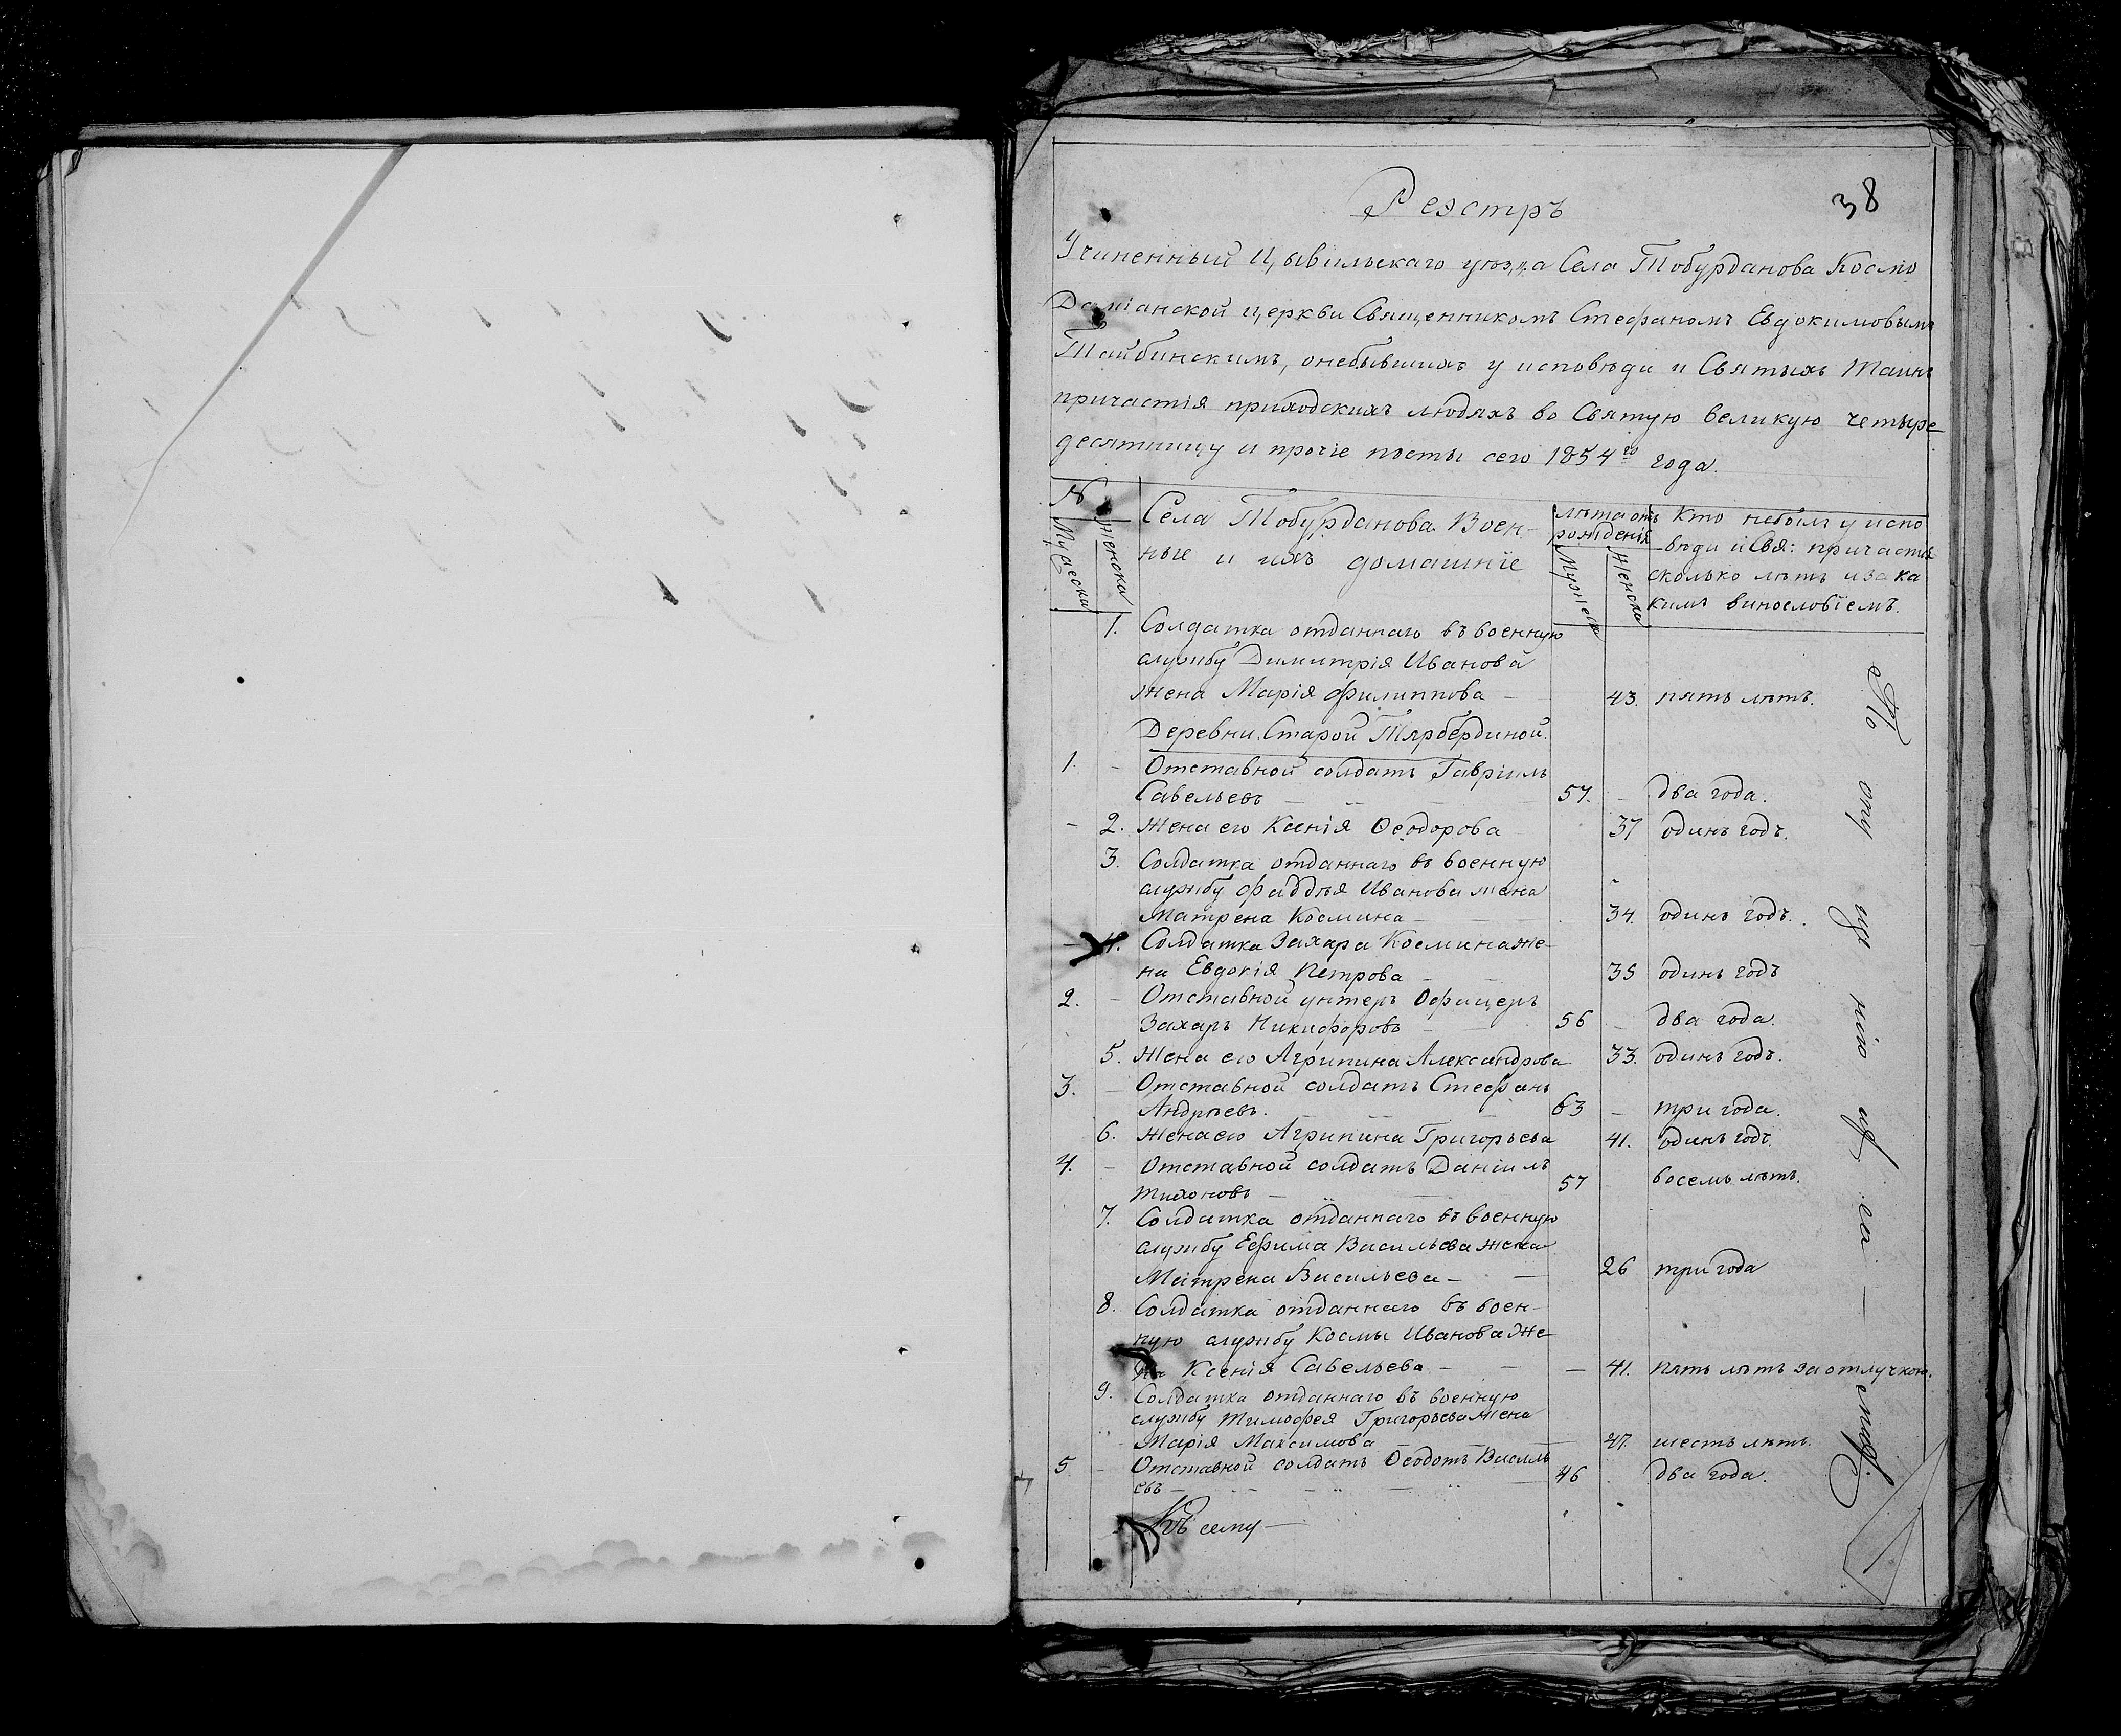 38
Реэстръ
Учиненный Цывильскаго уѣзда Села Тобурданова Космо
Даміанской церкви Священникомъ Стефаномъ Евдокимовымъ
Тайбинскимъ, онебывшихъ у исповѣди и Святыхъ Таинъ
причастія приходскихъ людяхъ во Святую великую четыре
десятницу и прочіе посты сего 1854го года.
№
Мужеска
женска
Села Тобурданова Воен-
ные и ихъ домашніе
лѣта отъ
рожденія
Мужеск
Женска
Кто небылъ у испо
вѣди и Свя: причастія
сколько лѣтъ иза ка
кимъ винословіемъ.
1. Солдатка отданнаго въ военную
службу Димитрія Иванова
жена Марія Филиппова — 43. пять лѣтъ.
Деревни Старой Тярбердиной.
1. – Отставной солдатъ Гавріилъ
Савельевъ — 57. – два года.
– 2. Жена его Ксенія Ѳеодорова 37 одинъ годъ.
3. Солдатка отданнаго въ военную
службу Фаддѣя Иванова жена
Матрена Космина — 34. одинъ годъ.
– 4. Солдатка Захара Косминаже-
на Евдокія Петрова — 35 одинъ годъ
2. – Отставной унтеръ Офицеръ
Захаръ Никифоровъ — 56 – два года.
5. Жена его Агрипина Александрова 33. одинъ годъ.
3. – Отставной солдатъ Стефанъ
Андрѣевъ. — 63 – три года.
6. Жена его Агрипина Григорьева 41. одинъ годъ.
4. – Отставной солдатъ Даніилъ
Тихоновъ — 57 восемь лѣтъ.
7. Солдатка отданнаго въ военную
службу Ефима Васильева жена
Матрена Васильева — 26 три года
8. Солдатка отданнаго въ воен-
ную службу Космы Иванова Же-
на Ксенія Савельева — 41. пять лѣтъ за отлучкою.
9. Солдатка отданнаго въ военную
службу Тимофея Григорьева жена
Марія Максимова — 47. шесть лѣтъ.
5 – Отставной солдатъ Ѳеодотъ Василь
евъ — 46 два года.
Къ сему —